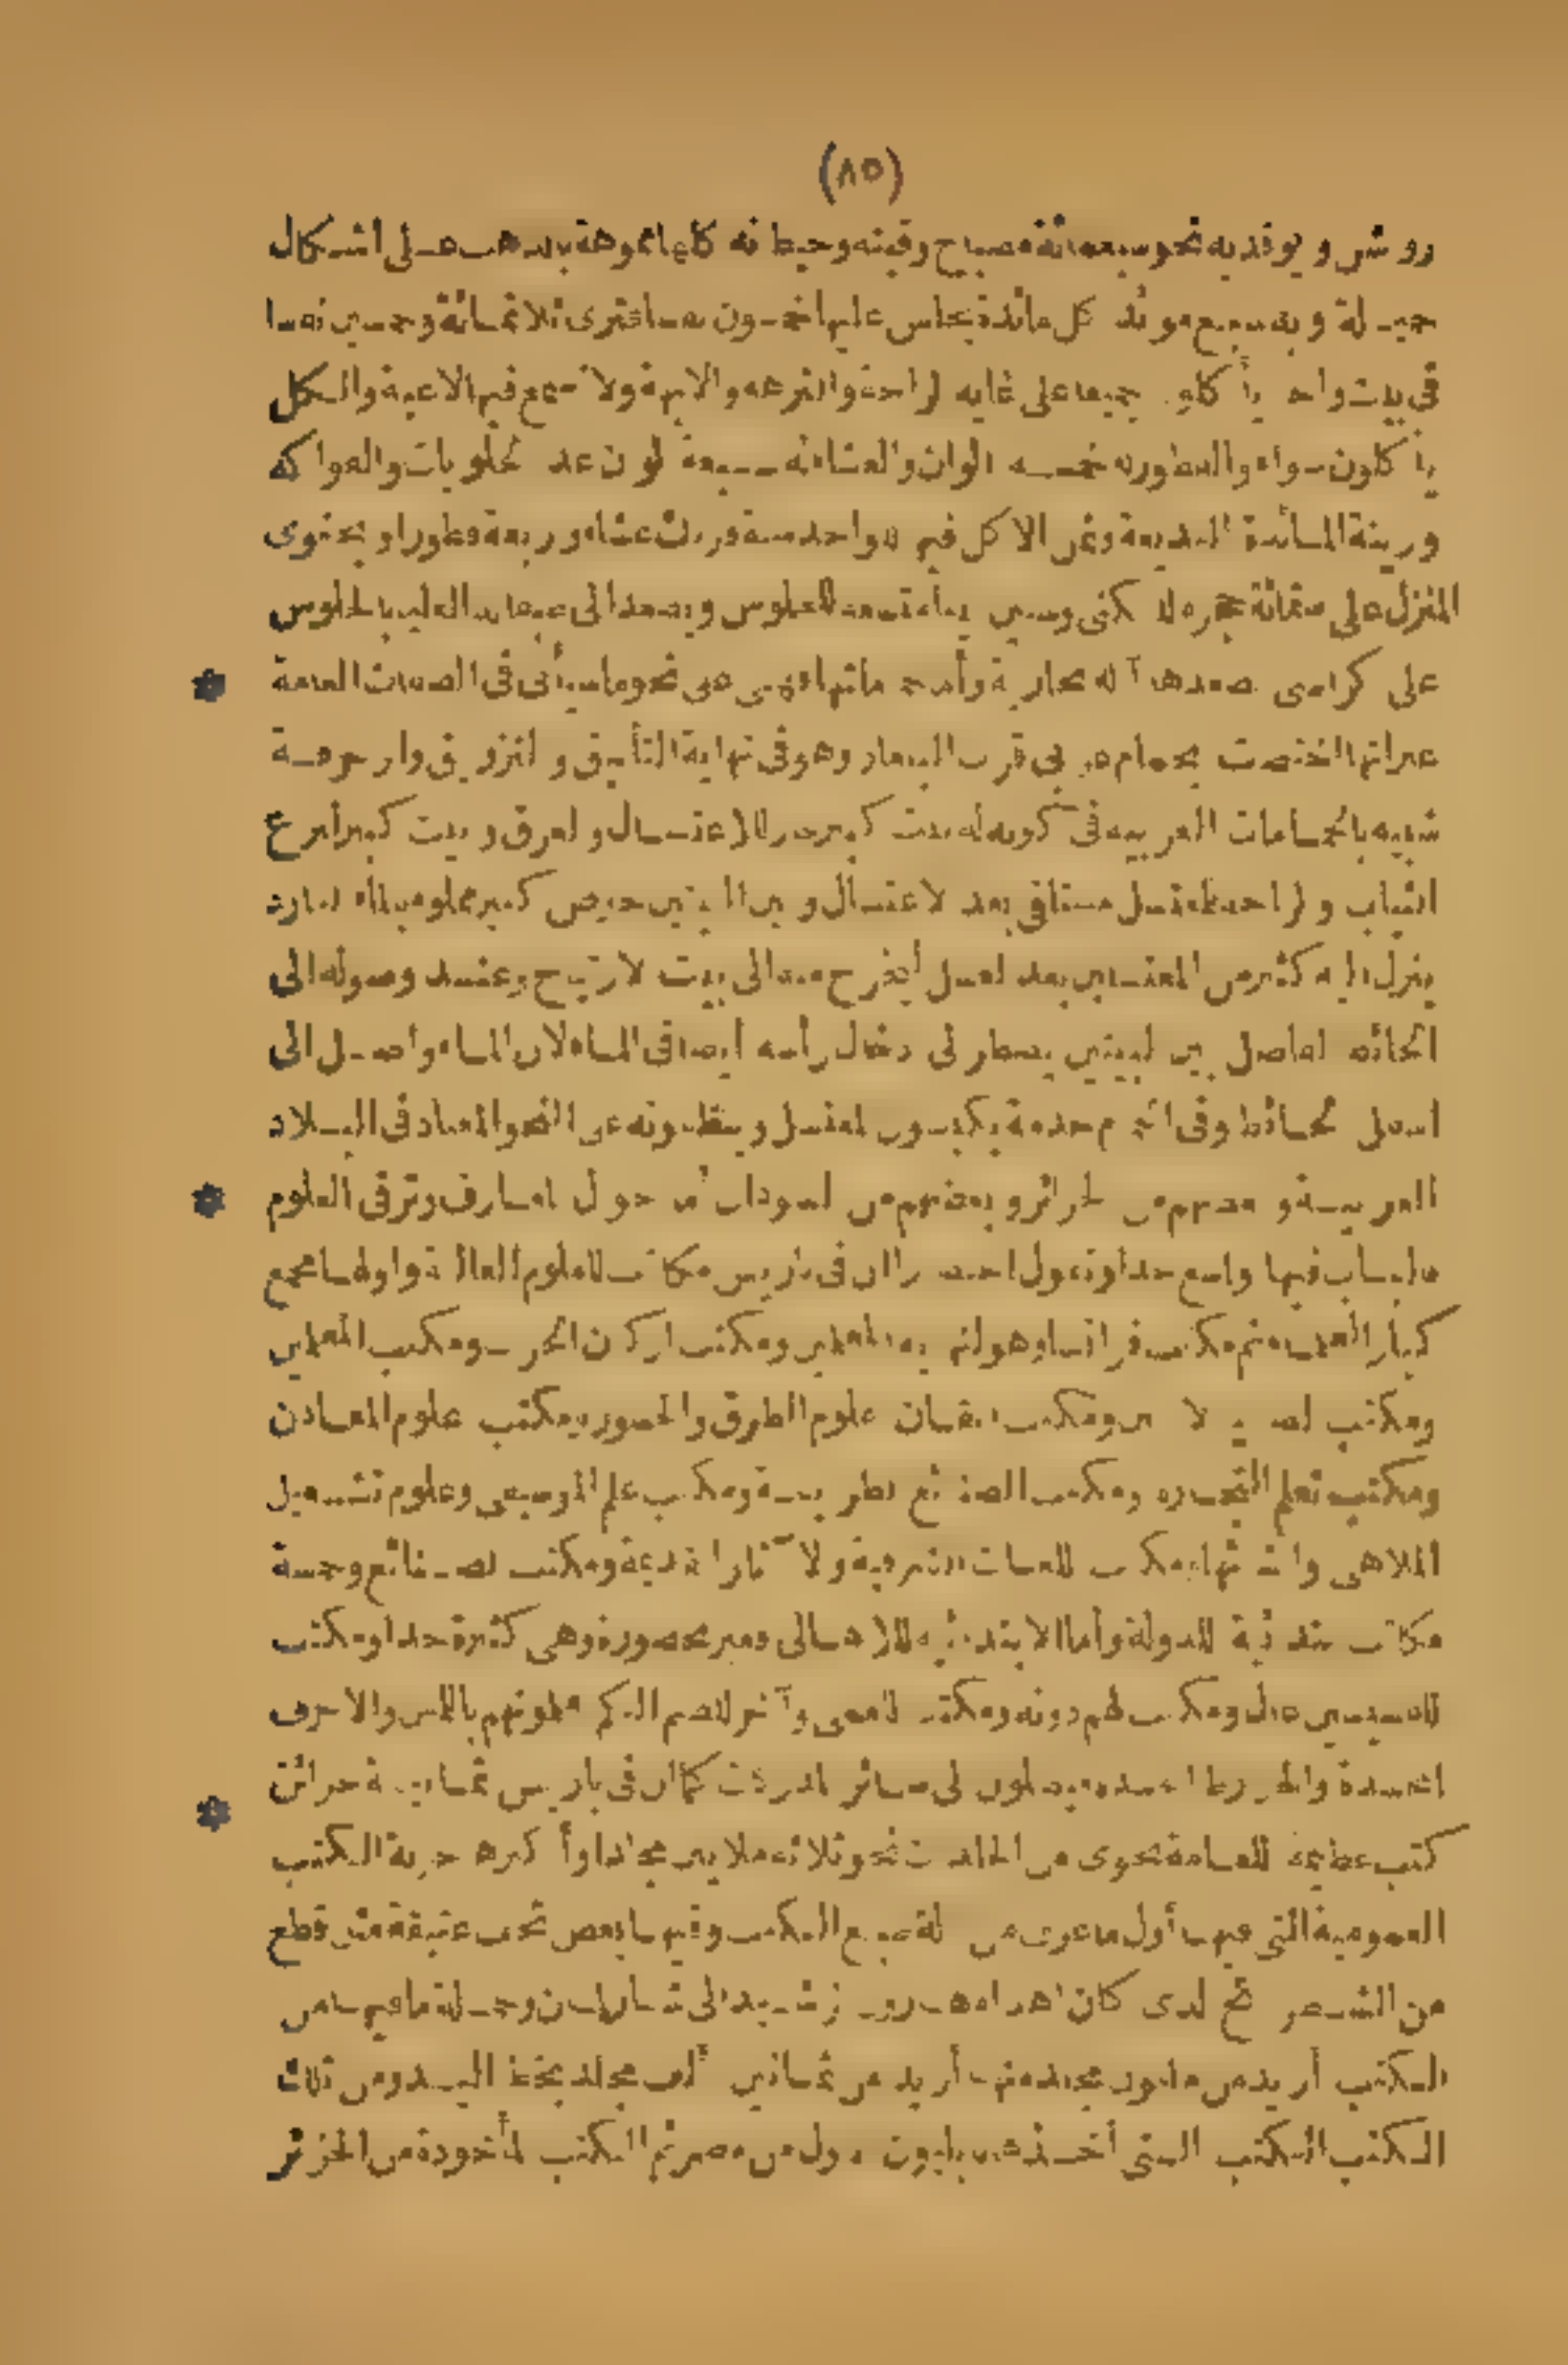 (٨٥)
روشن ويوقد به نحو سبعمائة مصباح وقبته وحيطانه كلها مموهة بالذهب على اشكال
جميلة وبه سبع موائد كل مائدة يجلس عليها خمسون نفسا فترى ثلاثمائة وخمسين نفسا
في بيت واحد يأكلون جميعا على غاية الراحة والنزهة والابهة ولا تسمع فيها لاغية والكل
يأكلون سواء والفطور له خمسة الوان والعشاء له سبعة الوان عدا الحلويات والفواكه
وزينة المائدة البديعة وثمن الاكل فيه للواحد ستة فرنك عشاء واربعة فطورا ويحتوى
المنزل على ستمائة حجرة للسكنى وبيتين للجلوس ويصعد الى طبقاته العليا بالجلوس
على كراسى تصعدها آلة بخارية وأما حماماتها فهى على نحو ما سيأتى فى الصفات العامة
غير انها اختصت بحمام عربى قرب وهو فى نهاية التأنيق والتزويق والزخرفة
شبيه بالحمامات العربية فى كونه له بيت كبير حار للاغتسال والعرق وبيت كبير لنزع
الثياب والراحة يستلقى بعد الاغتسال وبين البيتين حوض كبير مملوء بالماء البارد
ينزل اليه كثير من المغتسلين بعد الغسل ليخرج منه الى بيت الارتياح وعند وصوله الى
الحائط الفاصل بين البيتين يضطر الى ادخال رأسه أيضا فى الماء لان الماء واصل الى
اسفل الحائط وفى الحمام خدمة يكبسون المغتسل وينظفونه على النحو المعتاد فى البلاد
العربية وبعضهم من الجزائر وبعضهم من السودان أما احوال المعارف وترقى العلوم
فالباب فيها واسع جدا ونقول اختصارا ان فى باريس مكاتب للعلوم العالية واولها مجمع
كبار العلماء ثم مكتب فرانسا وهو لتربية المعلمين ومكتب اركان الحرب ومكتب المعلمين
ومكتب ومكتب اتقان علوم الطرق والجسور ومكتب علوم المعادن
ومكتب تعلم التجارة ومكتب الصنائع الظريفة ومكتب علم الموسيقى وعلوم تشغيل
الملاهى وانشائها ومكتب للغات الشرقية والآثار القديمة ومكتب الصنائع وخمسة
مكاتب ابتدائية للدولة وأما الابتدائية للاهالى فغير محصورة وهى كثيرة جدا ومكتب
للقسيسين عال ومكتب لهم دونه ومكتب للعمى وآخر للصم البكم يعلمونهم باللمس والاحرف
المجسدة والخطوط المجسدة فيصلون الى سائر الادراكات كما ان فى باريس ثمانية خزائن
كتب عظيمة للعامة تحوى من المجلدات نحو ثلاثة ملايين مجلدا وأكبرها خزانة الكتب
العمومية التى فيها أول ما عرى من آلة طبع الكتب وفيها بعض تحف عتيقة مثل قطع
من الشطرنج الذى كان اهداه هارون الرشيد الى شارلمان وجملة ما فيها من
الكتب أزيد من مليون مجلد منها أزيد من ثمانين ألف مجلد بخط اليد ومن تلك
الكتب الكتب التى أخذها نابليون الاول من مصر ثم الكتب المأخوذة من الجزائر